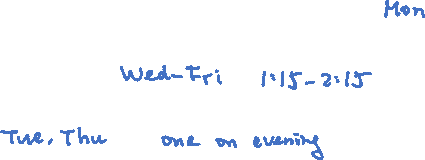 Mon
Wed-Fri 1:15-2:15
Tue, Thu one on evening